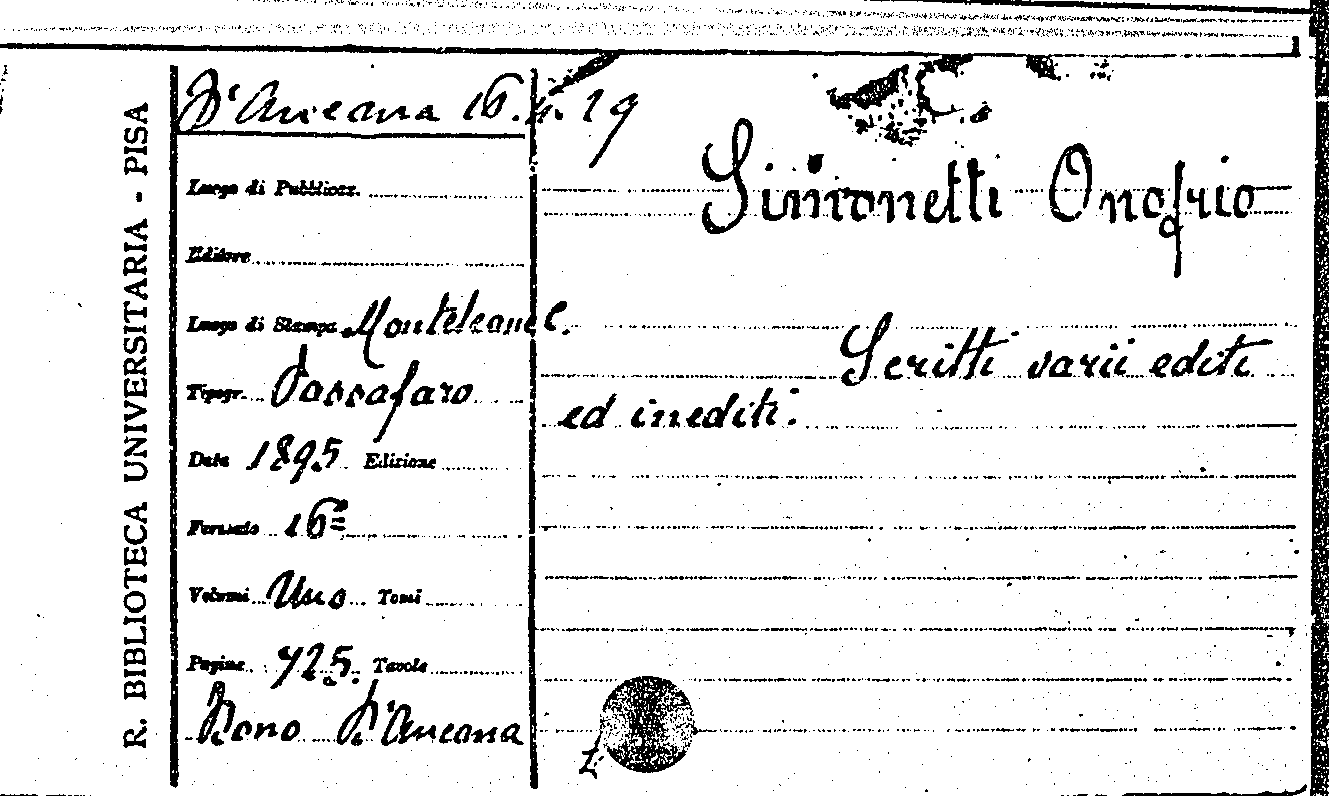 R. BIBLIOTECA UNIVERSITARIA - PISA
D'Ancona 16.4.29
Luogo di Pubblicaz.
Editore
Luogo di Stampa Monteleone C.
Tipogr. Passafaro
Data 1895 Edizione
Formato 16º
Volumi Uno Tomi
Pagine 725. Tavole
Dono D'Ancona
Simonetti Onofrio
Scritti varii editi
ed inediti.